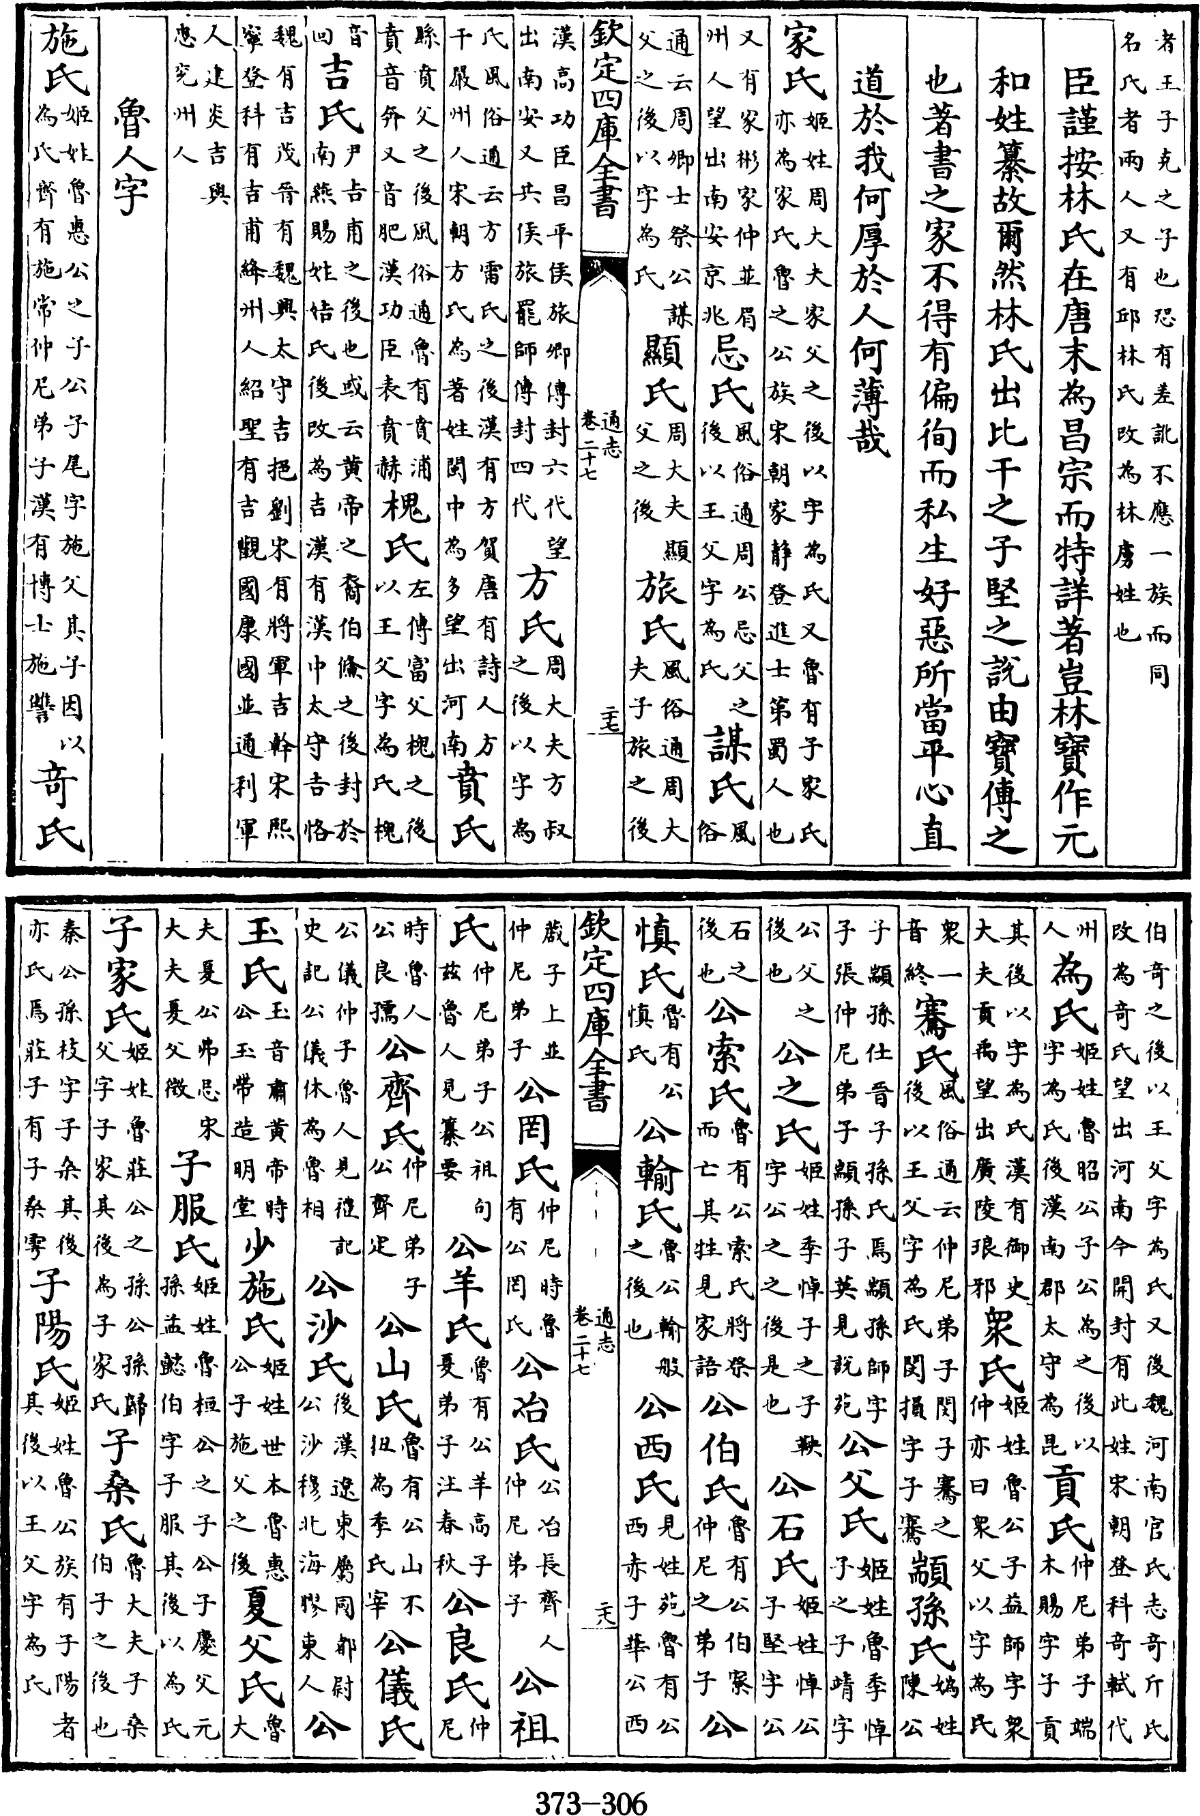 者王子克之子也恐有差訛不應一族而同
名氏者兩人又有邱林氏改為林虜姓也
臣謹按林氏在唐末為昌宗而特詳著豈林寶作元
和姓纂故爾然林氏出比干之子堅之說由寶傳之
也著書之家不得有偏徇而私生好惡所當平心直
道於我何厚於人何薄哉
家氏姬姓周大夫家父之後以字為氏又魯有子家氏亦為家氏魯之公族宋朝家静登進士第蜀人也
又有家彬家仲並眉州人望出南安京兆忌氏風俗通周公忌父之後以王父字為氏謀氏風俗
通云周卿士祭公謀父之後以字為氏顯氏周大夫顯父之後旅氏風俗通周大夫子旅之後
欽定四庫全書 通志卷二十七 二十七
漢高功臣昌平侯旅卿傳封六代望出南安又共侯旅罷師傳封四代方氏周大夫方叔之後以字為
氏風俗通云方雷氏之後漢有方賀唐有詩人方干嚴州人宋朝方氏為著姓閩中為多望出河南賁氏
縣賁父之後風俗通魯有賁浦賁音奔又音肥漢功臣表賁赫槐氏左傳富父槐之後以王父字為氏槐
音回吉氏尹吉甫之後也或云黄帝之裔伯儵之後封於南燕賜姓姞氏後改為吉漢有漢中太守吉恪
魏有吉茂晉有魏興太守吉挹劉宋有將軍吉幹宋熙寧登科有吉甫絳州人紹聖有吉觀國康國並通利軍
人建炎吉與忠兖州人
魯人字
施氏姬姓魯惠公之子公子尾字施父其子因以為氏齊有施常仲尼弟子漢有博士施讐奇氏
伯奇之後以王父字為氏又後魏河南官氏志奇斤氏改為奇氏望出河南今開封有此姓宋朝登科奇軾代
州人為氏姬姓魯昭公子公為之後以字為氏後漢南郡太守為昆貢氏仲尼弟子端木賜字子貢
其後以字為氏漢有御史大夫貢禹望出廣陵琅邪衆氏姬姓魯公子益師字衆仲亦曰衆父以字為氏
衆一音終騫氏風俗通云仲尼弟子閔子騫之後以王父字為氏閔損字子騫顓孫氏媯姓陳公
子顓孫仕晉子孫氏焉顓孫師字子張仲尼弟子顓孫子莫見說苑公父氏姬姓魯季悼子之子靖字
公父之後也公之氏姬姓季悼子之子鞅字公之之後是也公石氏姬姓悼公子堅字公
石之後也公索氏魯有公索氏將祭而亡其牲見家語公伯氏魯有公伯寮仲尼之弟子公
慎氏魯有公慎氏公輸氏魯公輸般之後也公西氏見姓苑魯有公西赤子華公西
欽定四庫全書 通志卷二十七 二十八
蒧子上並仲尼弟子公罔氏仲尼時魯有公罔氏公冶氏公冶長齊人仲尼弟子公祖
氏仲尼弟子公祖句兹魯人見纂要公羊氏魯有公羊高子夏弟子注春秋公良氏仲尼
時魯人公良孺公齊氏仲尼弟子公齊定公山氏魯有公山不狃為季氏宰公儀氏
公儀仲子魯人見禮記史記公儀休為魯相公沙氏後漢遼東屬國都尉公沙穆北海膠東人公
玉氏玉音肅黄帝時公玉帶造明堂少施氏姬姓世本魯惠公子施父之後夏父氏魯大
夫夏公弗忌宋大夫夏父徵子服氏姬姓魯桓公之子公子慶父元孫孟懿伯字子服其後以為氏
子家氏姬姓魯莊公之孫公孫歸父字子家其後為子家氏子桑氏魯大夫子桑伯子之後也
秦公孫枝字子桑其後亦氏焉莊子有子桑雩子陽氏姬姓魯公族有子陽者其後以王父字為氏
373-306